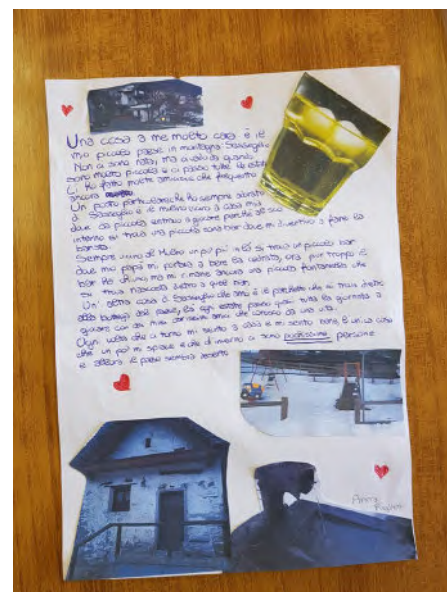 Una cosa a me molto cara è il
mio piccolo paese in montagna Sonogno.
Non ci sono nata, ma ci vado quando
sono molto piccola e ci passo tutte le estati
Lì ho fatto molte amicizie che frequento
ancora
Un posto particolare che ho sempre adorato
di è il mulino vicino a casa mia
dove da piccola entravo a giocare perché al suo
interno si trova una piccola sala bar dove mi divertivo a fare la
barista.
Sempre vicino al Mulino un po' più in là si trova un piccolo bar
dove mio papà mi portava a bere la, ora, pur troppo il
bar ha chiuso, ma mi rimane ancora una piccola fontanella che
si trova nascosta dietro a quel bar.
Un' altra cosa di che amo è il parchetto che si trova dietro
alla bottega del paese, lì ogni estate passo quasi tutta la giornata a
giocare con dei miei amici che conosco da una vita.
Ogni volta che ci torno mi sento a casa e mi sento bene, è un'unica cosa
che un po' mi spiace è che d'inverno ci sono pochissime persone
e allora il paese sembra deserto
Anna